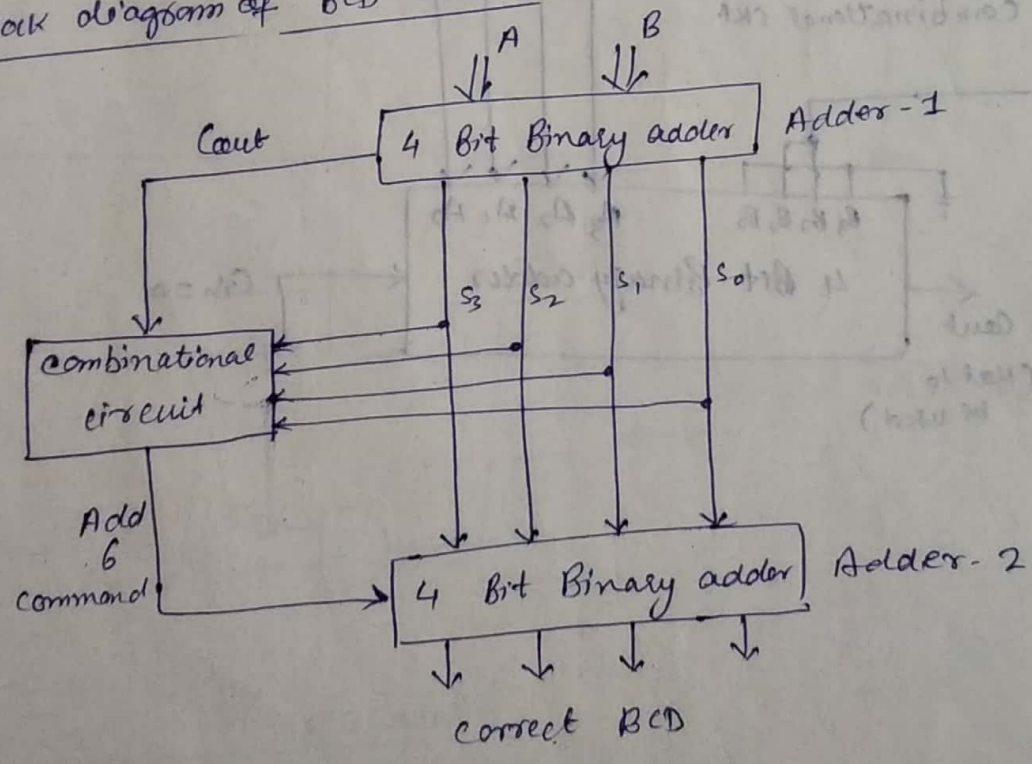 diagram of BCD
A
B
Cout
4 Bit Binary adder
Adder-1
S3
S2
S1
S0
combinational
circuit
Add
6
command
4 Bit Binary adder
Adder-2
correct BCD